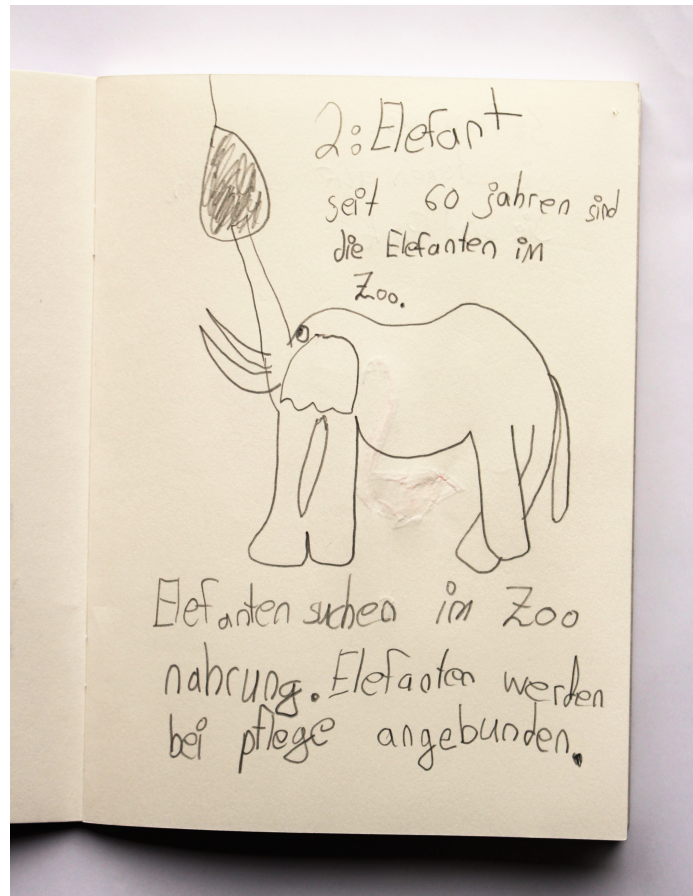 2: Elefant
seit 60 jahren sind
die Elefanten im
Zoo.
Elefanten suchen im Zoo
nahrung. Elefanten werden
bei pflege angebunden.